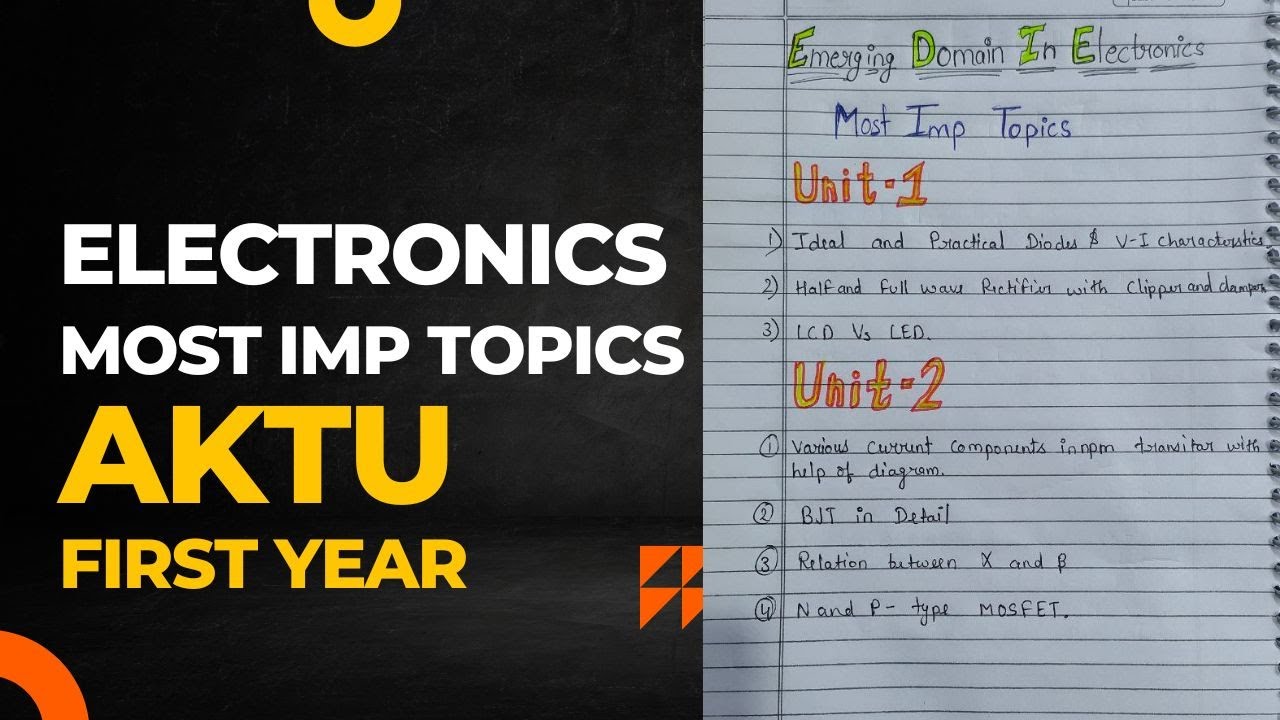 ELECTRONICS
MOST IMP TOPICS
AKTU
FIRST YEAR
Emerging Domain In Electronics
Most Imp Topics
Unit-1
1) Ideal and Practical Diodes & V-I characterstics
2) Half and Full wave Rectifier with Clipper and clampers
3) LCD Vs LED.
Unit-2
① Various Current Components in npm transitor with
help of diagram.
② BJT in Detail
③ Relation between X and β
④ N and P- type MOSFET.